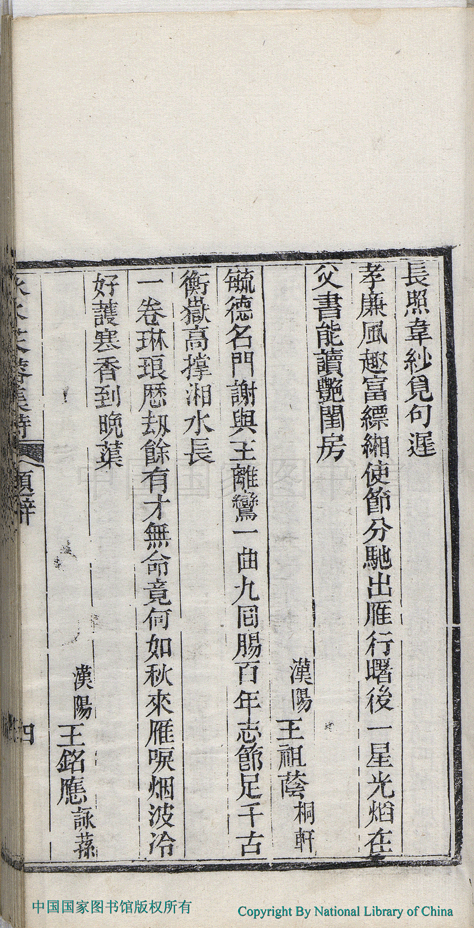 長照韋紗覓句遲
孝廉風趣富縹緗使節分馳出雁行曙後一星光熖在
父書能讀艷閨房
漢陽王祖蔭桐軒
毓德名門謝與王離鸞一曲九囘腸百年志節足千古
衡嶽高撐湘水長
一卷琳琅歷刼餘有才無命竟何如秋來雁唳烟波冷
好護寒香到晩蕖
漢陽王銘應詠蓀
題辭
四
中国国家图书馆
中国国家图书馆版权所有
Copyright By National Library of China